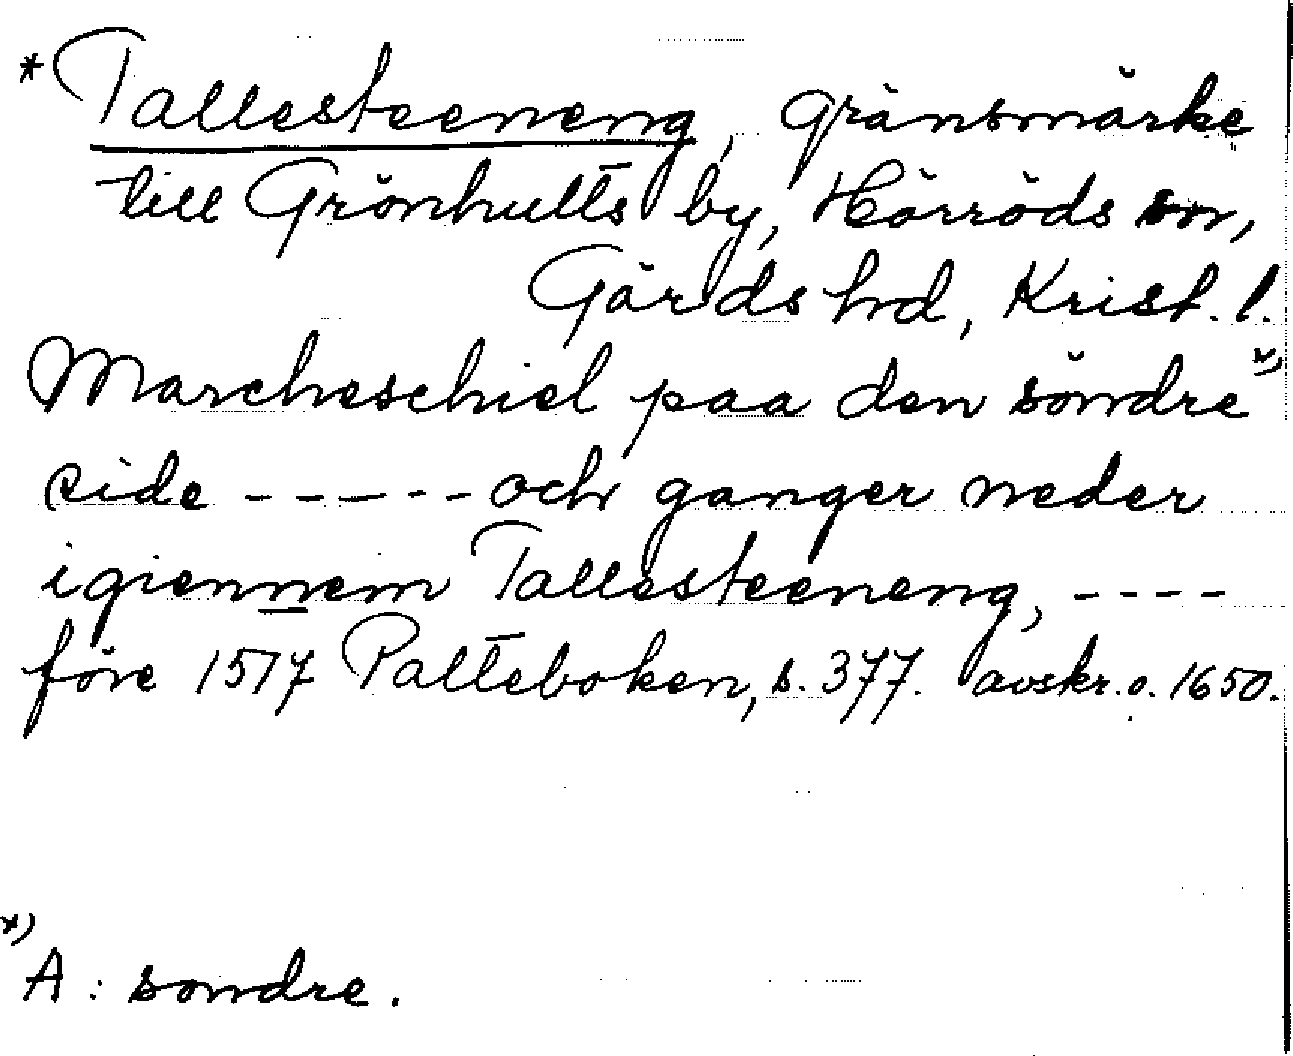 *Tallesteeneng, gränsmärke
till Grönhults by, Hörröds sn,
Gärds hd, Krist. l.
Marcheschiel paa den söndre x)
side ----- och ganger neder
igiennem Tallesteeneng, ----
före 1517 Palteboken, s. 377. avskr. o. 1650.
x)
A: sondre.